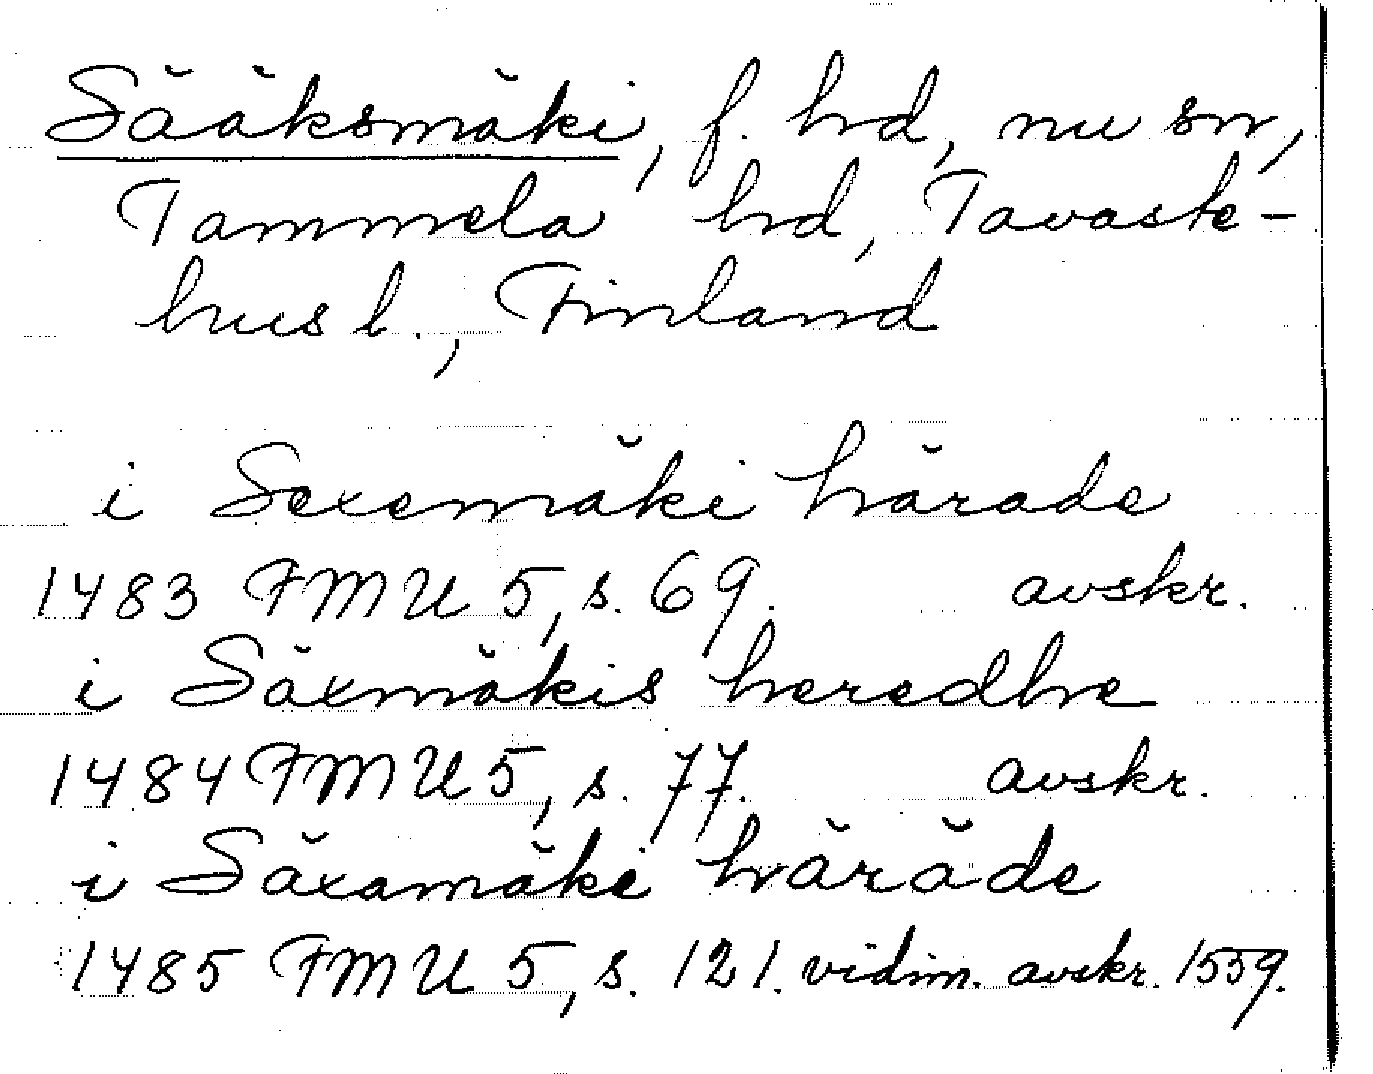 Sääksmäki, f. hd, nu sn,
Tammela hd, Tavaste-
hus l., Finland
i Sexemäki härade
1483 FMU 5, s. 69. avskr.
i Säxmäkis heredhe
1484 FMU 5, s. 77. avskr.
i Säxamäki häräde
1485 FMU 5, s. 121. vidim. avskr. 1559.